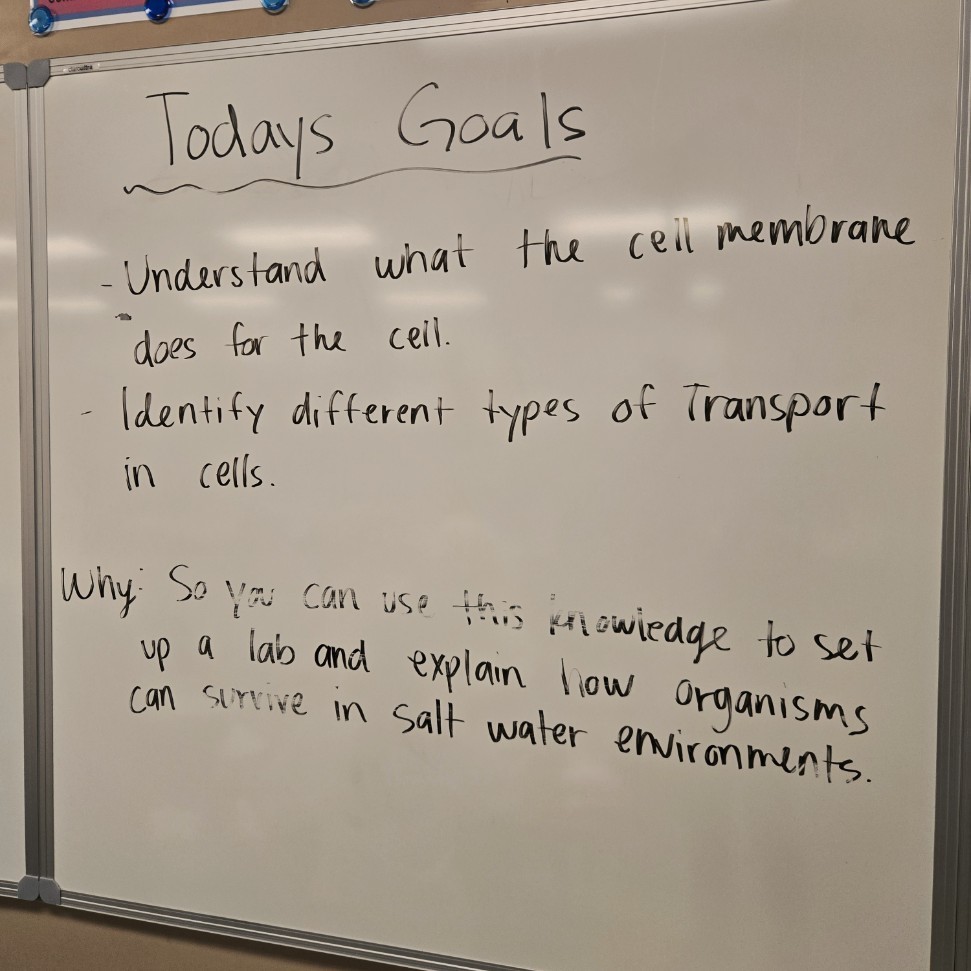 Todays Goals
- Understand what the cell membrane
does for the cell.
- Identify different types of Transport
in cells.
Why: So you can use this knowledge to set
up a lab and explain how organisms
can survive in salt water environments.